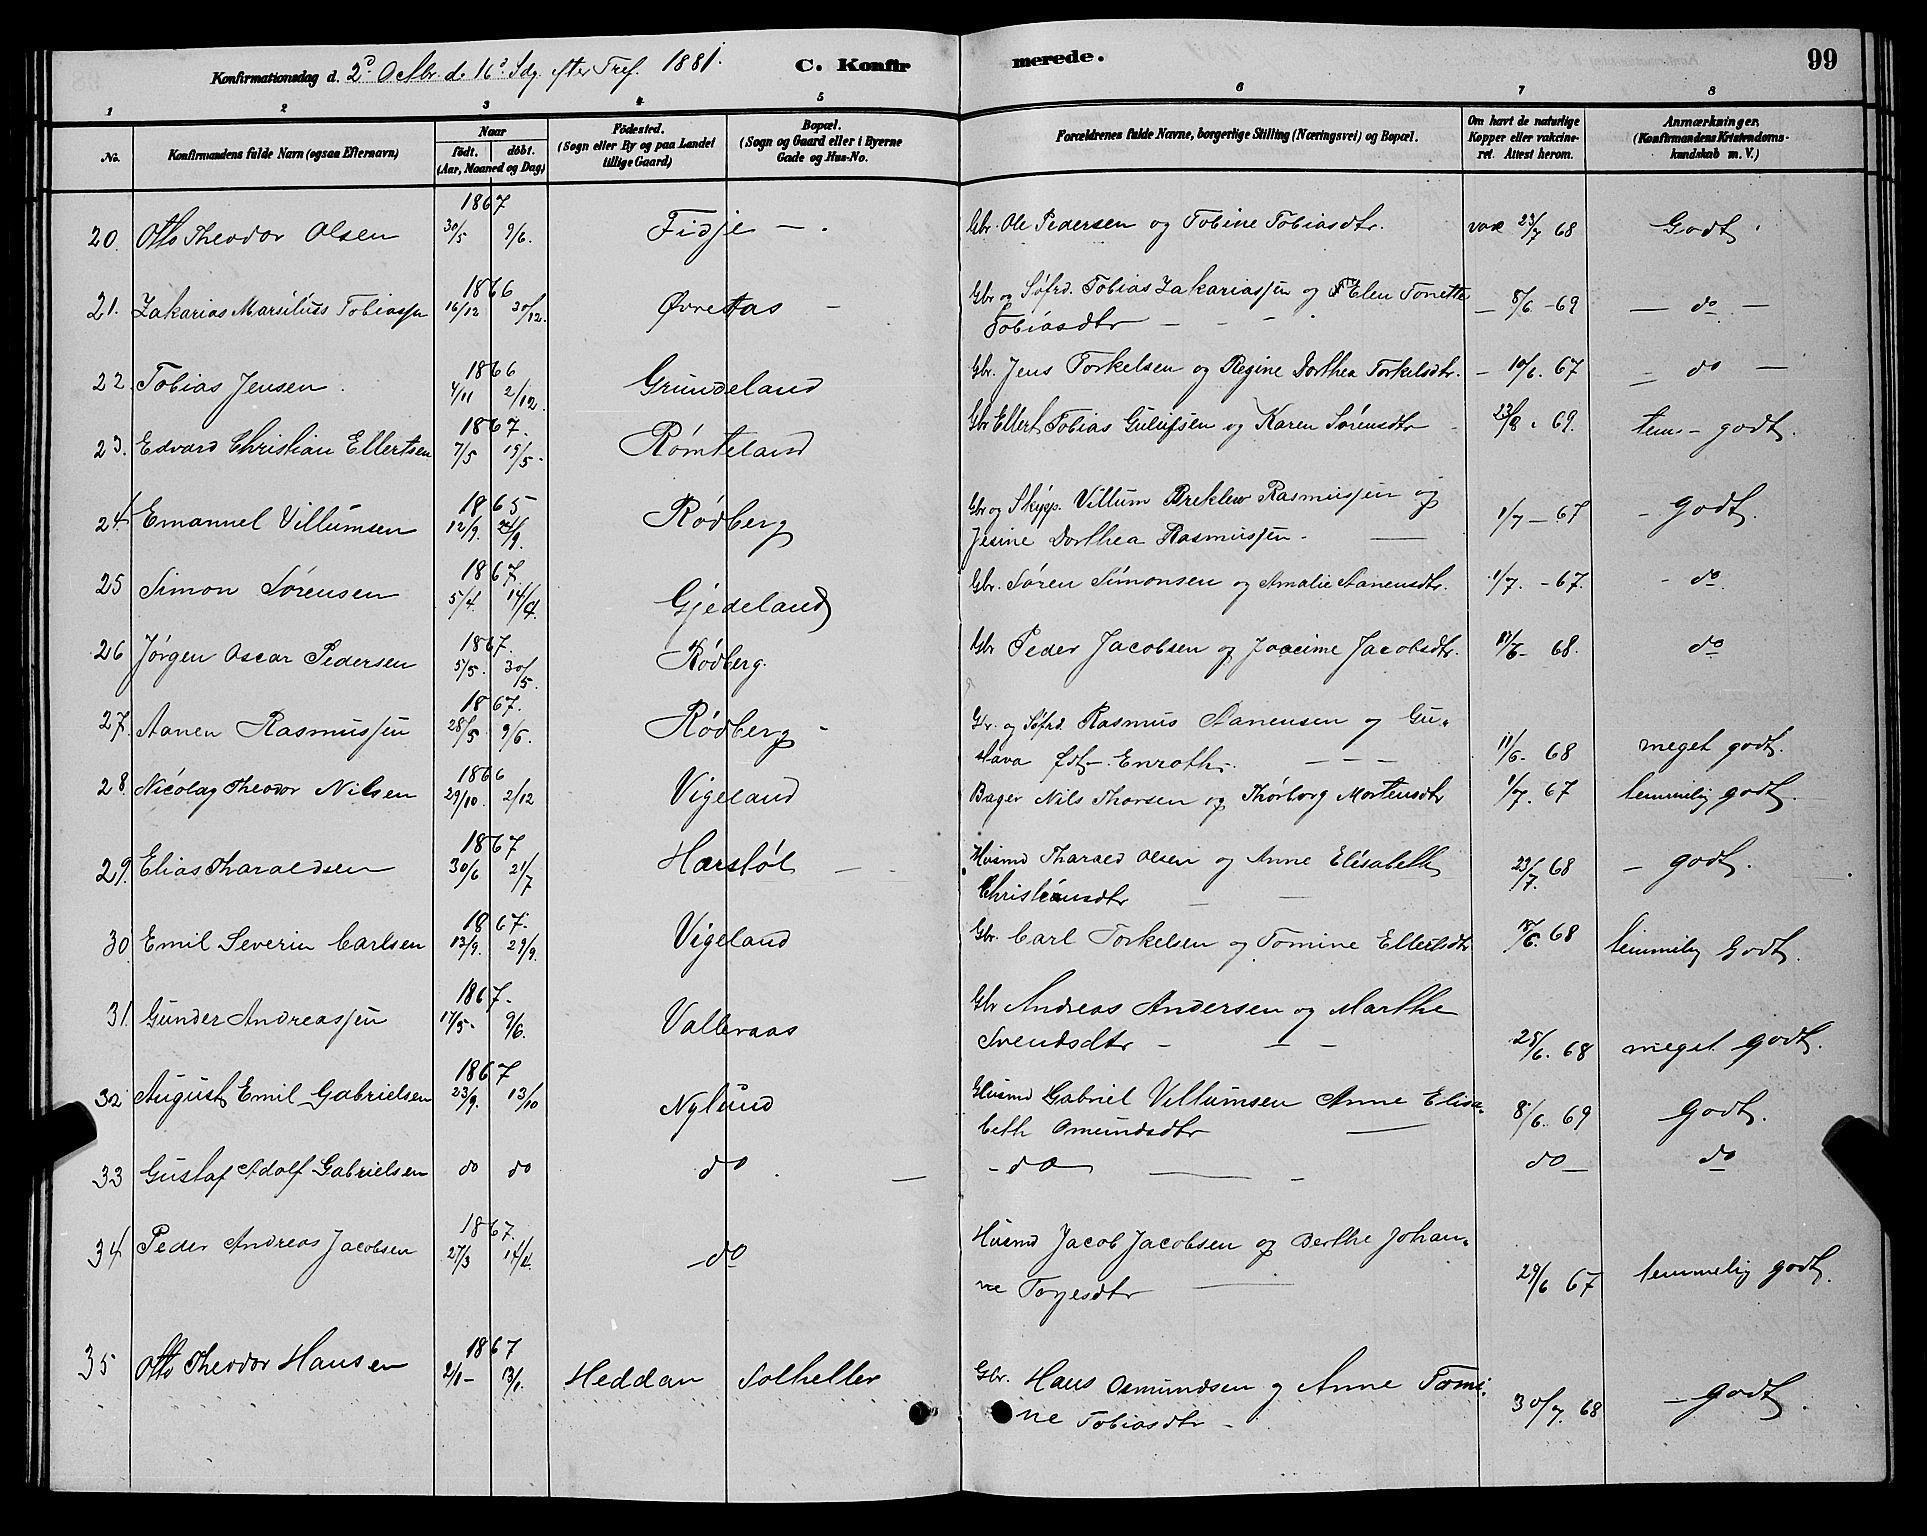 Konfirmationsdag d. 2den Octbr. d. 16de Sdg. efter Tref. 1881. C. Konfirmerede. 99
1 2 3 4 5 6 7 8
No. Konfirmandens fulde Navn (ogsaa Efternavn) Naar født. døbt. (Aar, Maaned og Dag) Fødested. (Sogn eller By og paa Landet tillige Gaard) Bopæl. (Sogn og Gaard eller i Byerne Gade og Hus-No. Forældrenes fulde Navne, borgerlige Stilling (Næringsvei) og Bopæl. Om havt de naturlige Kopper eller vakcineret. Attest herom. Anmærkninger. (Konfirmandens Kristendomskundskab m. V.)
1867
20. Otto Theodor Olsen 30/5 9/6. Fidje - . Gbr. Ole Pedersen og Tobine Tobiasdtr. vax 23/7 68 Godt.
1866
21. Zakarias Marsilius Tobiassen 16/12 30/12. Øvretaas - Gbr og Søfrd. Tobias Zakariassen og Elen Tonette
Tobiasdtr - - - - 8/6 - 69 - do -
1866
22. Tobias Jensen. 4/11 2/12. Grundeland Gbr. Jens Torkelsen og Regine Dorthea Torkelsdtr. - 10/6. 67 - do -
1867.
23. Edvard Christian Ellertsen 7/5 19/5. Rømteland Gbr Ellert Tobias Gulufsen og Karen Sørensdtr 23/8. 69. tem - godt.
1865
24. Emanuel Villumsen 12/9. 24/9. Rødberg Gbr og Skipp. Villum Breklew Rasmussen og
Jesine Dorthea Rasmussen. - 1/7 - 67 - godt.
1867.
25 Simon Sørensen 5/4. 14/4. Gjedeland Gbr. Søren Simonsen og Amalie Aanensdtr. 1/7. - 67. - do
1867.
26 Jørgen Oscar Pedersen 5/5. 30/5. Rødberg. Gbr Peder Jacobsen og Joacime Jacobsdtr. 11/6 - 68. do
1867.
27. Aanen Rasmussen 28/5 9/6. Rødberg - Gbr. og Søfrd. Rasmus Aanensen og Gustava fdt - Enroth. - - - 11/6. 68 meget godt.
1866
28. Nicolay Theodor Nilsen 29/10. 2/12 Vigeland Bager Nils Thorsen og Thorborg Mortensdtr 1/7. 67 temmelig godt.
1867
29. Elias Tharaldsen 30/6 21/7 Harstøl - - Husmd Tharald Olsen og Anne Elisabeth
Christensdtr - - 23/7. 68 - godt.
1867.
30. Emil Severin Carlsen 13/9. 29/9. Vigeland Gbr. Carl Torkelsen og Tomine Ellertsdtr 68 temmelig Godt.
1867.
31. Gunder Andreassen 17/5 - 9/6. Valleraas Gbr Andreas Andersen og Marthe
Svendsdtr - - - 28/6. 68 meget godt.
1867
32 August Emil Gabrielsen 23/9. 13/10 Nylund Husmd Gabriel Villumsen Anne Elisabeth Omundsdtr - 8/6. 69 godt.
33 Gustaf Adolf Gabrielsen do do do. - - do - - do - do
1867.
34 Peder Andreas Jacobsen 27/3 14/4. - do Husmd Jacob Jacobsen og Berthe Johanne Torjesdtr - 29/6 67 temmelig godt.
1867
35 Otto Theodor Hansen 2/1 - 13/1. Heddan Solheller Gbr. Hans Osmundsen og Anne Tomine Tobiasdtr - 30/7. 68 - godt.